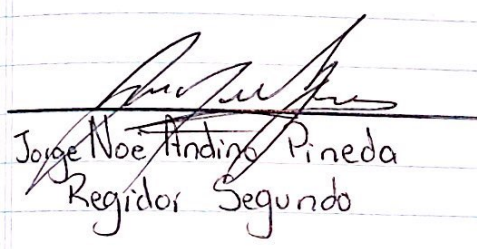 Jorge Noe Andino Pineda
Regidor Segundo